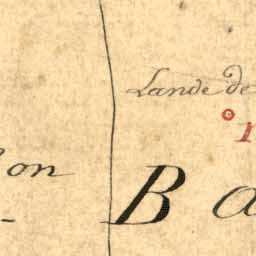 Lande de
on
Ba